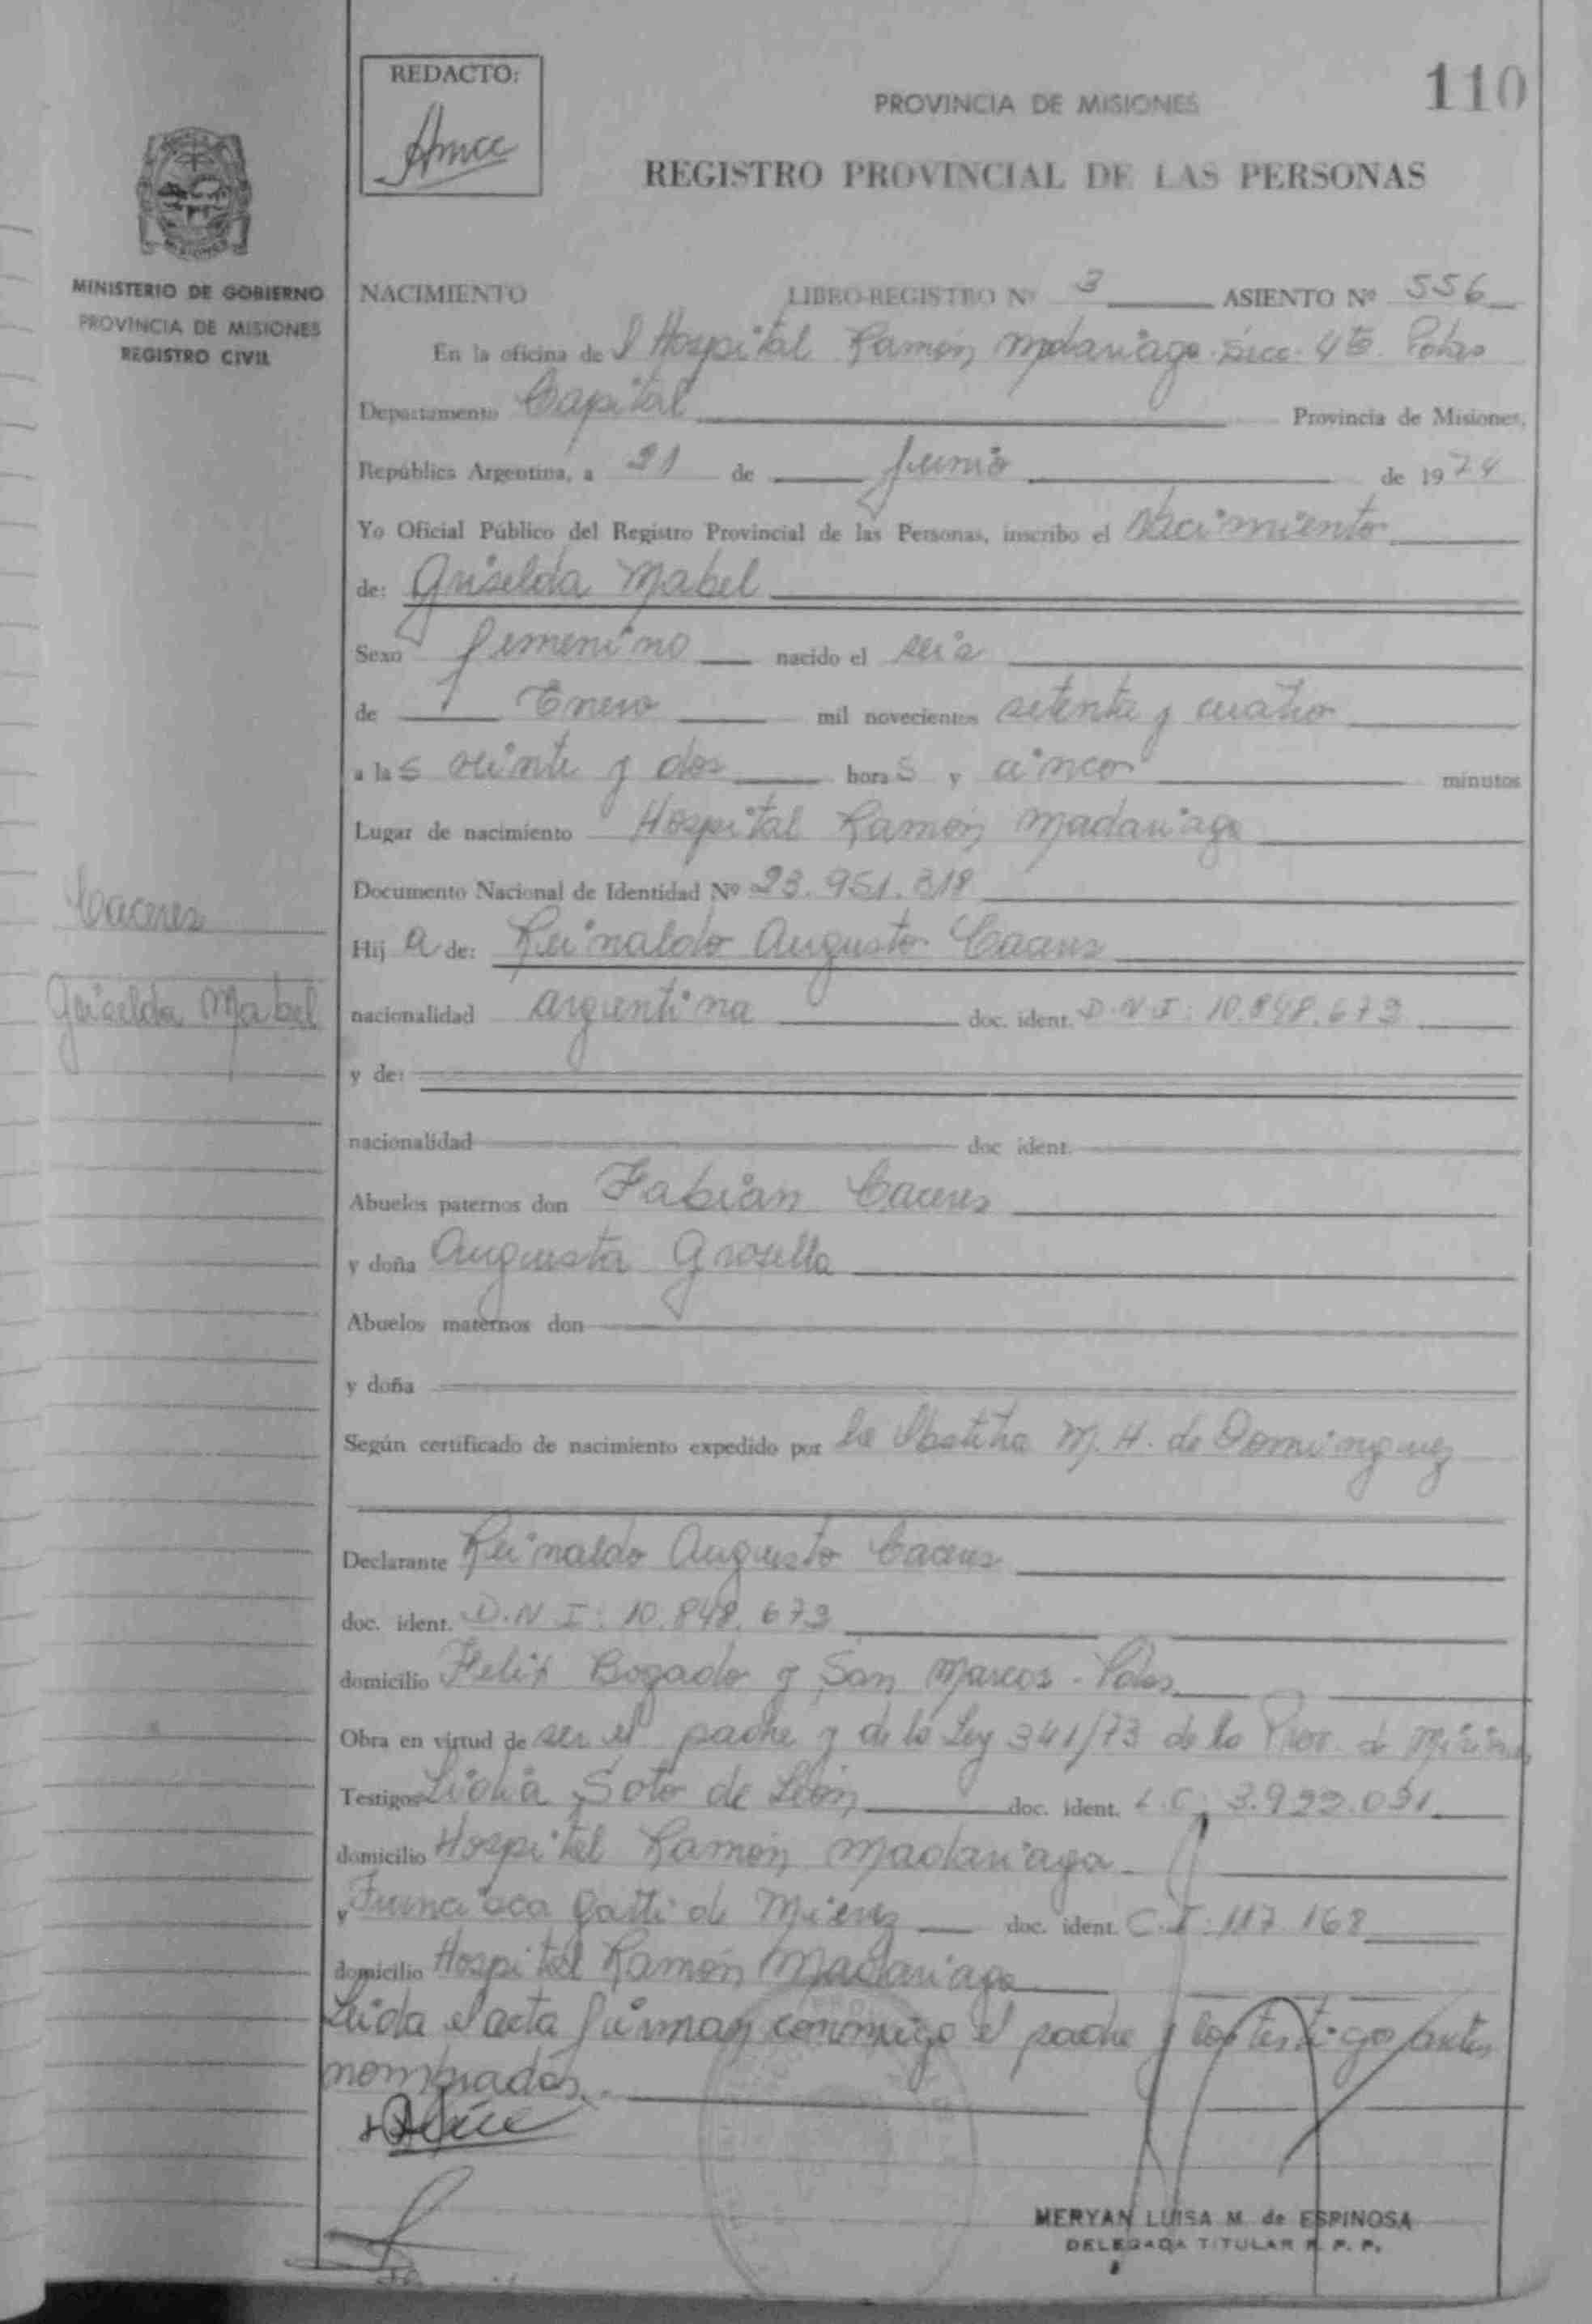 REDACTO:
PROVINCIA DE MISIONES
110
REGISTRO PROVINCIAL DE LAS PERSONAS
MINISTERIO DE GOBIERNO
PROVINCIA DE MISIONES
REGISTRO CIVIL
NACIMIENTO LIBRO-REGISTRO Nº 3 ASIENTO Nº 556
En la oficina de l Hospital Ramón Madariaga Secc. 4ta. Pdas
Departamento Capital Provincia de Misiones,
República Argentina, a 21 de Junio de 1974
Yo Oficial Público del Registro Provincial de las Personas, inscribo el Nacimiento
de: Griselda Mabel
Sexo femenino nacido el seis
de Enero mil novecientos setenta y cuatro
a las veinte y dos horas y cinco minutos
Lugar de nacimiento Hospital Ramón Madariaga
Documento Nacional de Identidad Nº 23.951.318
Caceres
Hij a de: Reinaldo Augusto Caceres
Griselda Mabel
nacionalidad argentina doc. ident. D.N.I: 10.848.673
y de:
nacionalidad doc ident.
Abuelos paternos don Fabián Caceres
y doña Augusta Grosella
Abuelos maternos don
y doña
Según certificado de nacimiento expedido por la Obstétra M. H. de Dominguez
Declarante Reinaldo Augusto Caceres
doc. ident. D.N.I: 10.848.673
domicilio Felix Bogado y San Marcos - Pdas
Obra en virtud de ser el padre y de la Ley 341/73 de la Prov. de Misiones
Testigos Lidia Soto de León doc. ident. L.C. 3.922.031
domicilio Hospital Ramón Madariaga
y Francisca Gatti de doc. ident. C.I: 117.168
domicilio Hospital Ramón Madariaga
Leída el acta firman conmigo el padre y los testigos antes
nombrados.
MERYAN LUISA M. de ESPINOSA
DELEGADA TITULAR R. P. P.